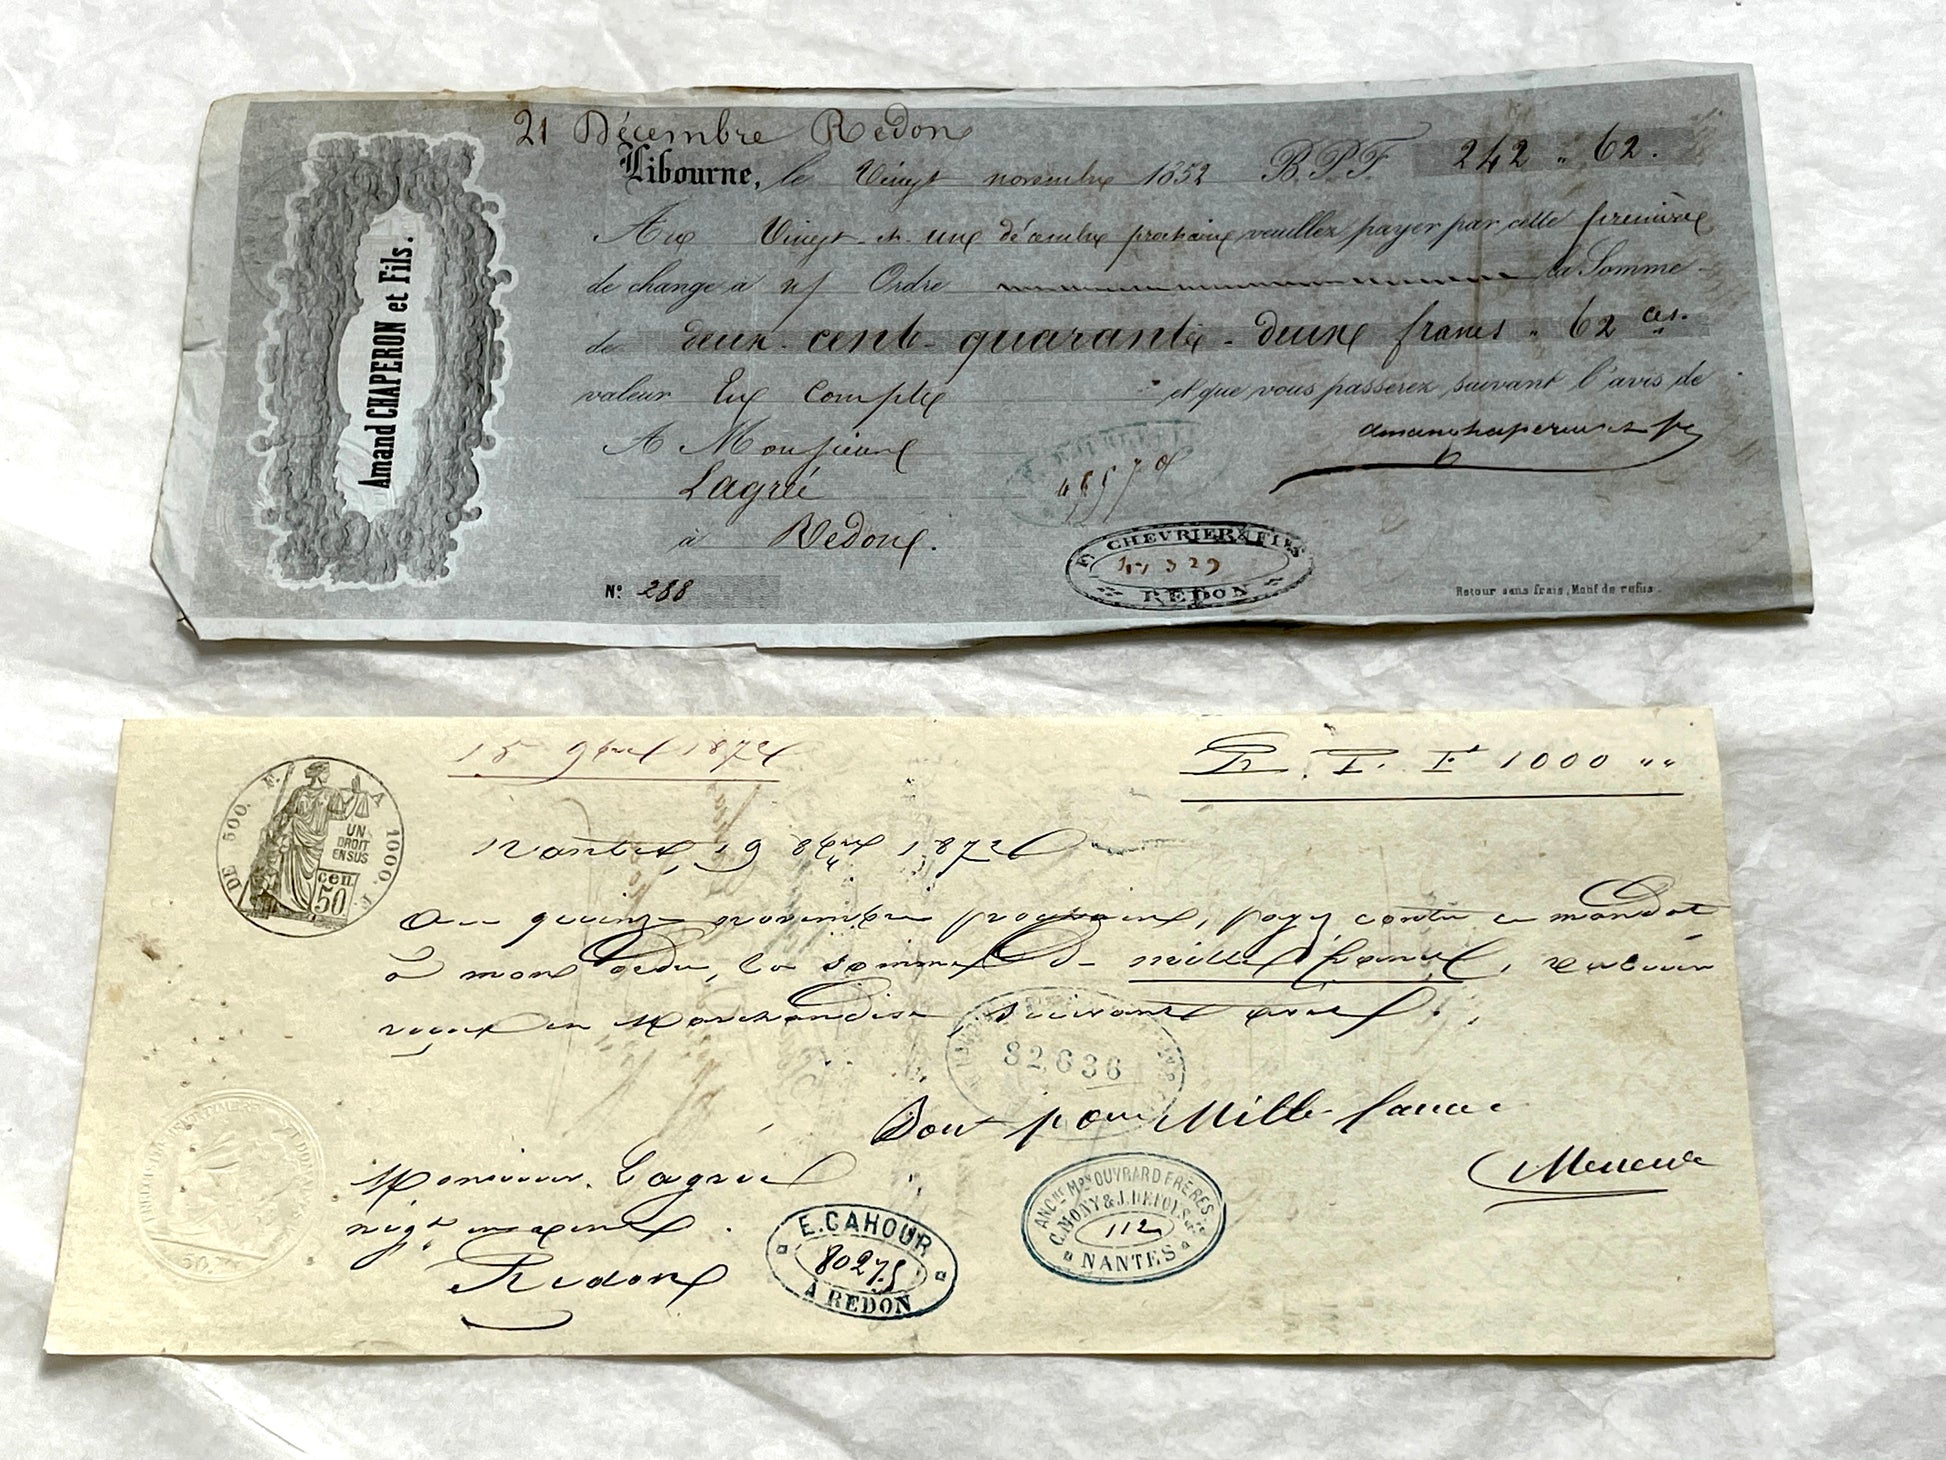 21 Décembre Redon
Libourne, le Vingt novembre 1852 B.P.F 242 " 62.
Au Vingt et un décembre prochain veuillez payer par cette première
de change à n/ Ordre la Somme
de deux cent quarante deux francs " 62 ces.
valeur En Compte et que vous passerez suivant l'avis de
A Monsieur
Lagrée
à Redon.
Amand CHAPERON et Fils.
CHEVRIER & FILS
REDON
No. 288
Retour sans frais, Motif de refus.
15 9bre 1872
B. P. F 1000 " "
DE 500. F. A 1000. F
UN
DROIT
EN SUS
cen.
50
Nantes, 19 8bre 1872
Au quinze novembre prochain, payez contre ce mandat
à mon ordre, la somme de mille francs, valeur
reçue en marchandises, suivant avis.
82636
Bon pour Mille francs
Monsieur Lagrée
négt
Redon
E. CAHOUR
8027.5
A REDON
ANCNE MON OUVRARD FRÈRES
112
NANTES